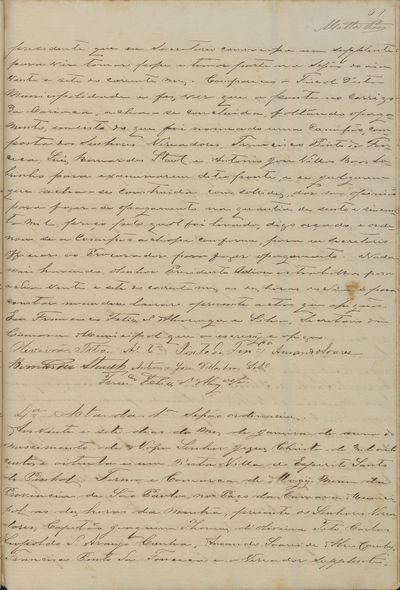 61
presidente que eu Secretario convocasse um supplente
para vir tomar posse e tomar parte na Sessão do dia
vinte e sete do corrente mez. Compareceo o Fiscal desta
Municipalidade e fez ver que a ponte no corrego
da achava-se concluida, faltando o paga
mento, em vista do que foi nomeado uma Comissão com
posta dos Senhores Vereadores, Francisco Pinto da Fon
ceca, Luiz Bernardes Staut e Antonio José Villas Boas So
brinho para examinarem dita ponte, e se julgarem
que se acha construida com solidez, dar seo parecer
para fazer-se o pagamento na quantia de cento e cincoen
ta mil , preço pelo qual foi lavrado, digo orçado, e orde
nou se a Comissão achasse conforme, para eu Secretario
officiar ao Procurador para fazer o pagamento. Nada
mais havendo, o Senhor Presidente adiou os trabalhos para
o dia vinte e sete do corrente mez, as dez horas da manhã e para
constar mandou lavrar a presente acta que assignão.
Eu Francisco Felix d' e Silva, Secretario da
Camara Municipal que a escrevi e assigno.
Oliveira Pinto da Fonca Amando Soares
Bernardes Staut Antonio José Villas boas Sobro
Franco Felix d'
4ª Acta da 1ª Sessão ordinaria.
Aos vinte e sete dias do Mez de Janeiro do anno do
Nascimento de Nosso Senhor Jezus Christo de mil oito
centos e oitenta e um nesta Villa do Espirito Santo
do Pinhal, Termo e Comarca de Mogy Mirim da
Provincia de São Paulo, no Paço da Camara Munici
pal as dez horas da manhã, presente os Senhores Verea
dores, Capitão Joaquim Thomaz d'Oliveira , Carlos
Leopoldo d'Araujo Cunha, Amando Soares de ,
Francisco Pinto da Fonceca e o Vereador Supplente